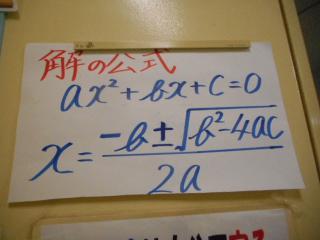 解の公式
ax²+bx+c=0
x=(-b±√(b²-4ac))/(2a)